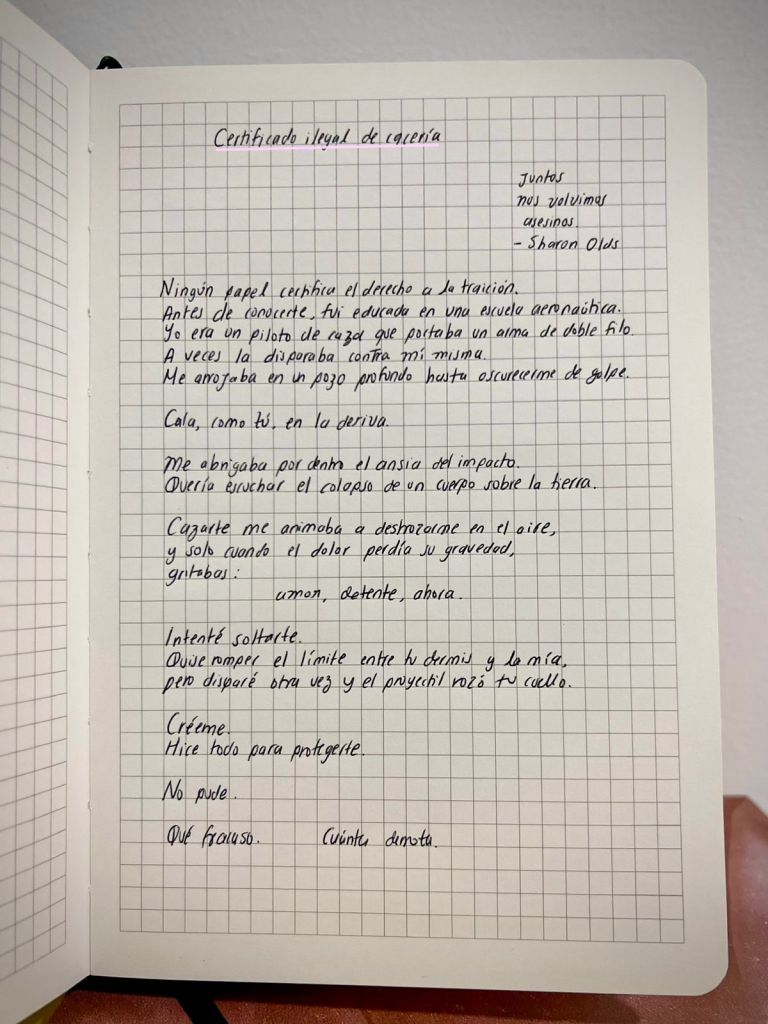 Certificado ilegal de cacería
Juntos
nos volvimos
asesinos.
- Sharon Olds
Ningún papel certifica el derecho a la traición.
Antes de conocerte, fui educada en una escuela aeronáutica.
Yo era un piloto de caza que portaba un arma de doble filo.
A veces la disparaba contra mí misma.
Me arrojaba en un pozo profundo hasta oscurecerme de golpe.
Caía, como tú, en la deriva.
Me abrigaba por dentro el ansia del impacto.
Quería escuchar el colapso de un cuerpo sobre la tierra.
Cazarte me animaba a destrozarme en el aire,
y solo cuando el dolor perdía su gravedad,
gritabas:
amor, detente, ahora.
Intenté soltarte.
Quise romper el límite entre tu dermis y la mía,
pero disparé otra vez y el proyectil rozó tu cuello.
Créeme.
Hice todo para protegerte.
No pude.
Qué fracaso. Cuánta derrota.